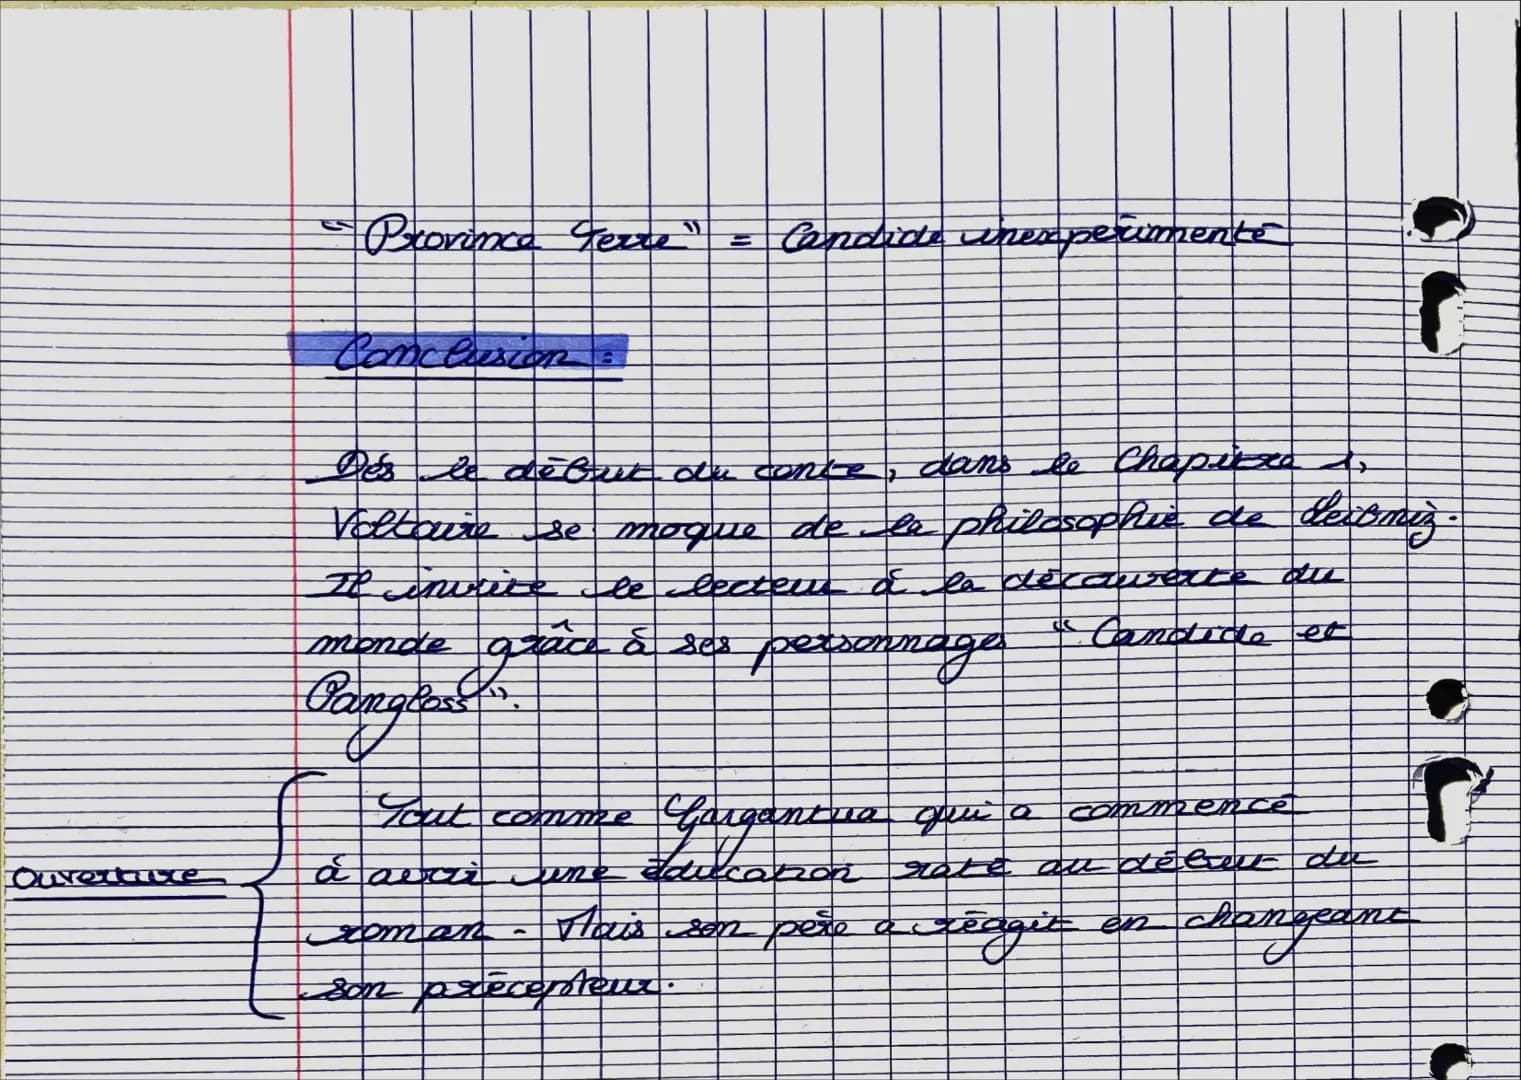 "Province Terre" = Candide inexpérimenté
Conclusion :
Dés le début du conte, dans le Chapitre 1,
Voltaire se moque de la philosophie de Leibniz.
Il invite le lecteur à la découverte du
monde grâce à ses personnages "Candide et
Pangloss".
Tout comme Gargantua qui a commencé
Ouverture à avoir une éducation raté au début du
roman - Mais son père a réagit en changeant
son précepteur.